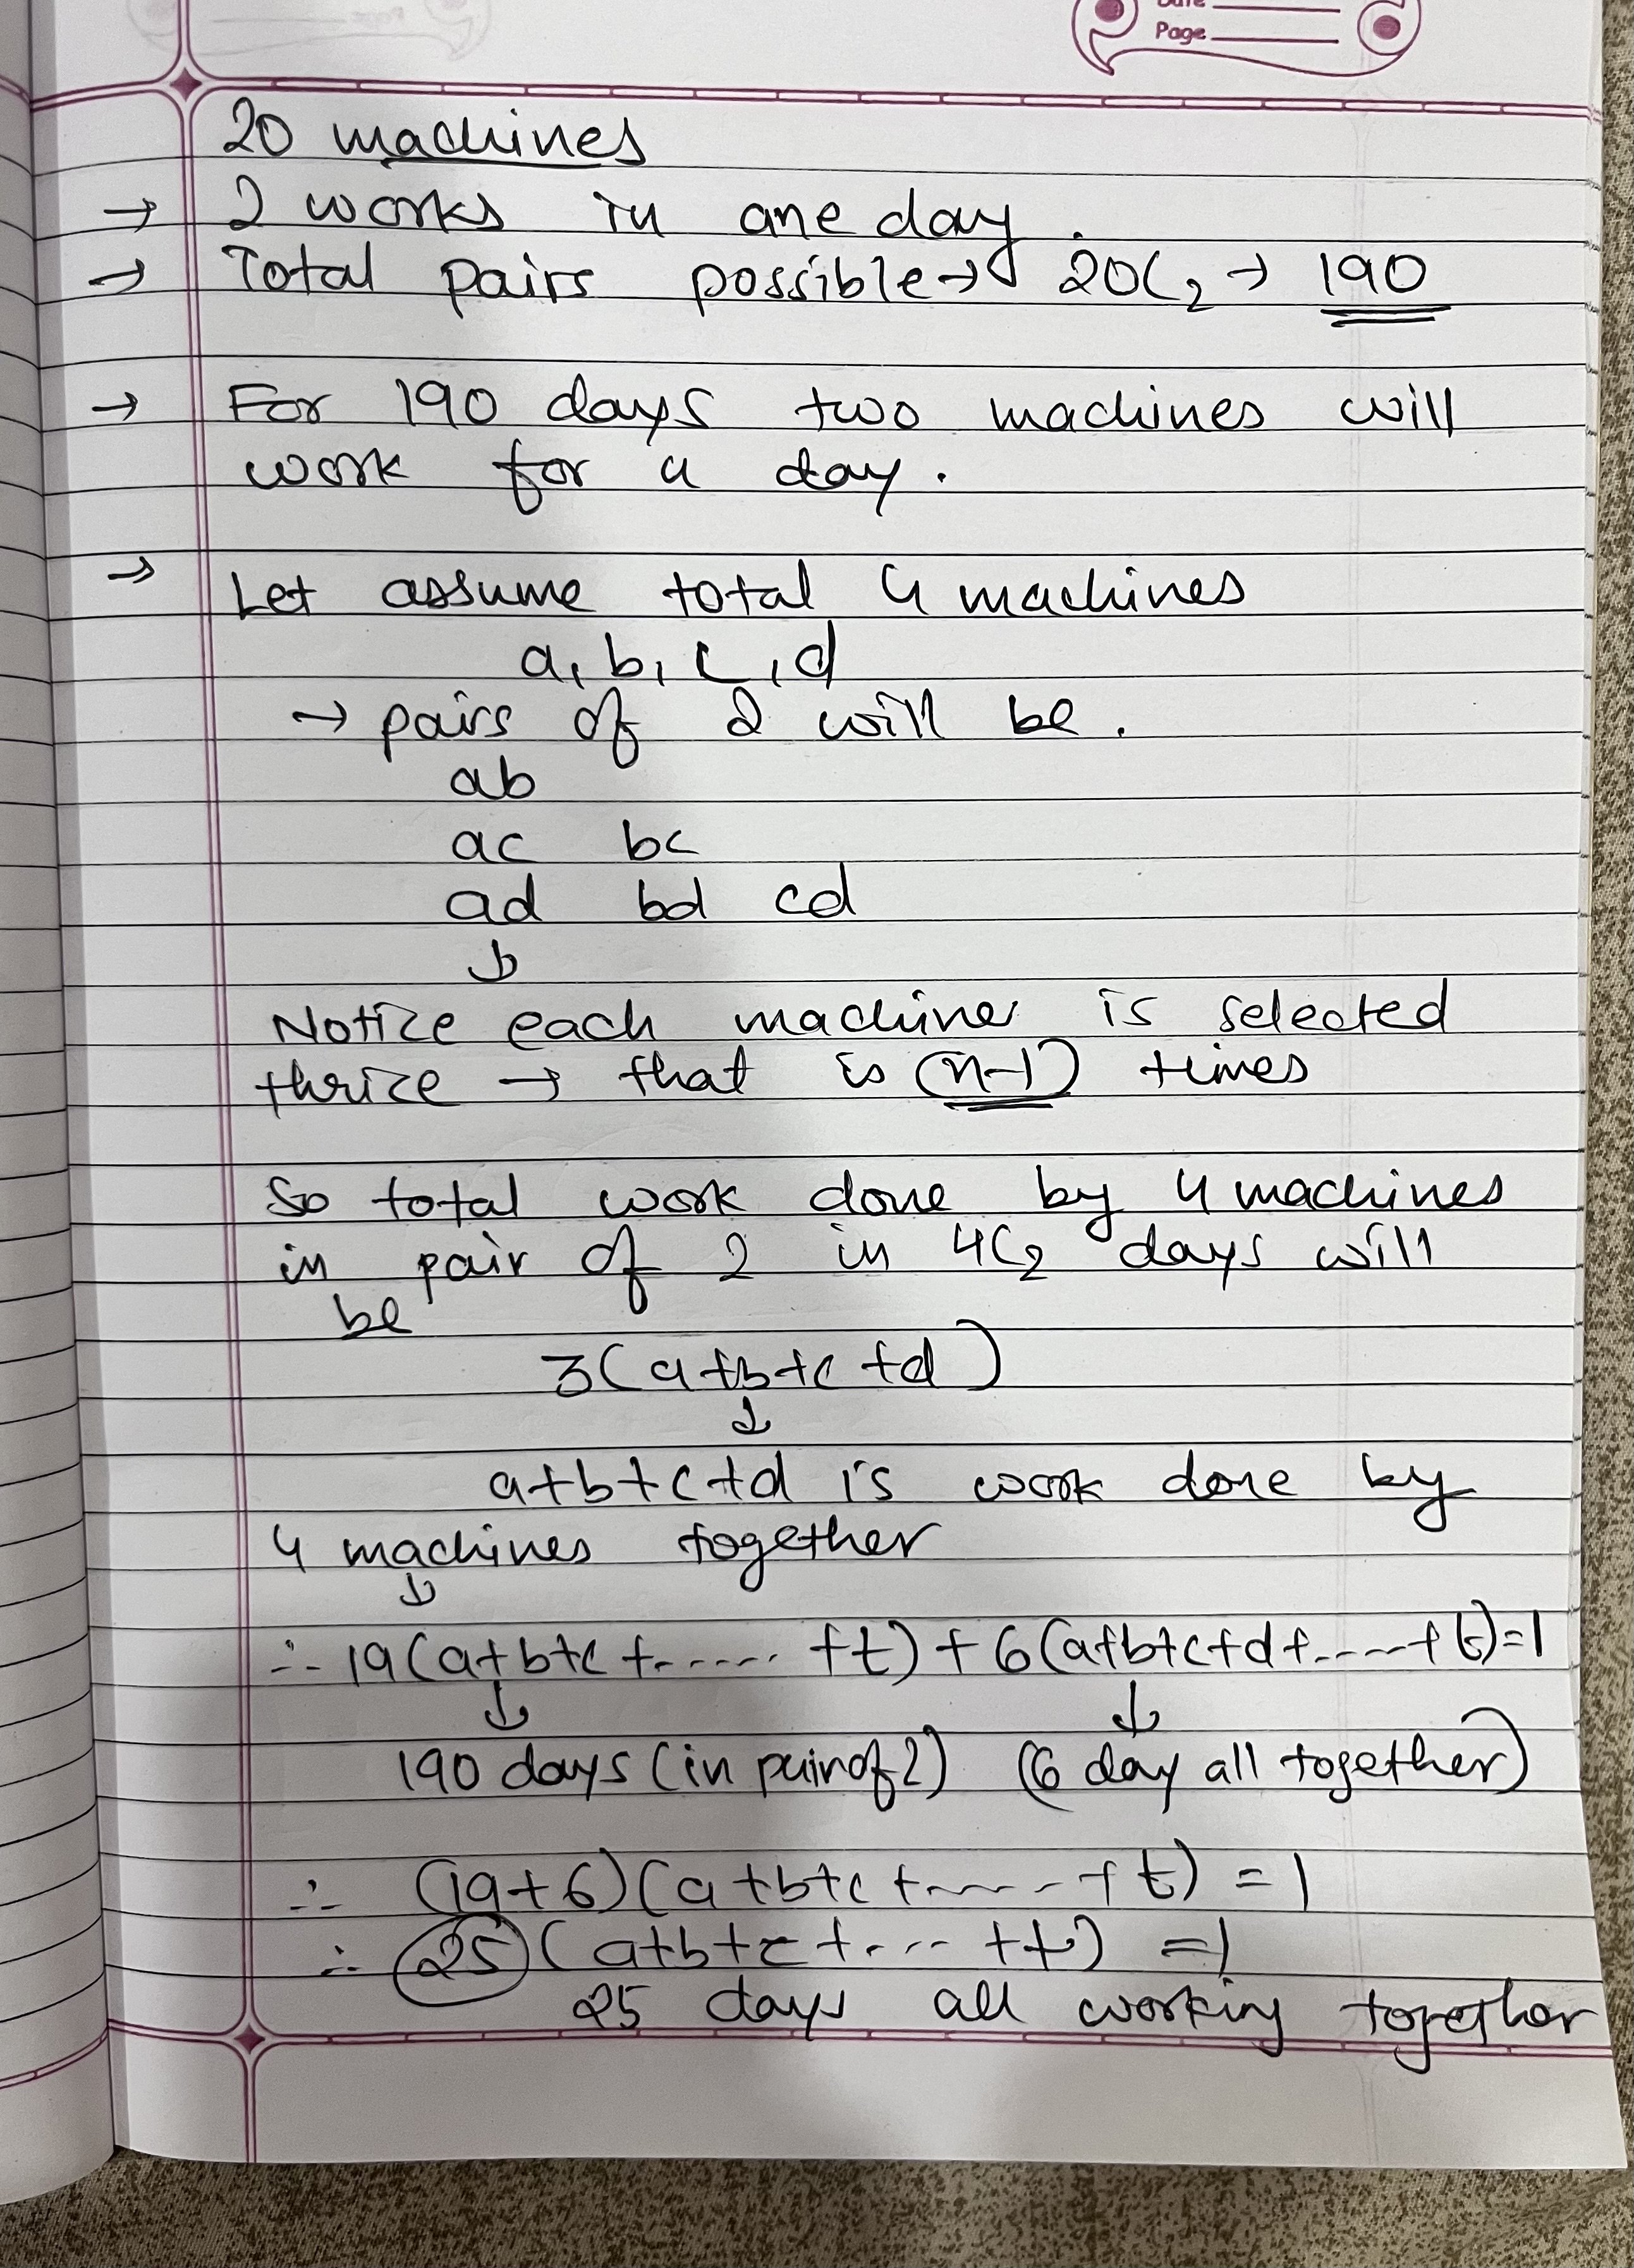 Date
Page
20 machines
→ 2 works in one day.
→ Total pairs possible → 20C₂ → 190
→ For 190 days two machines will
work for a day.
→ Let assume total 4 machines
a, b, c, d
→ pairs of 2 will be.
ab
ac bc
ad bd cd
↓
Notice each machine is selected
thrice → that is (n-1) times
So total work done by 4 machines
in pair of 2 in 4C₂ days will
be
3(a+b+c+d)
↓
a+b+c+d is work done by
4 machines together
↓
∴ 19(a+b+c+...... +t) + 6(a+b+c+d+.....+t)=1
↓ ↓
190 days (in pair of 2) (6 day all together)
∴ (19+6)(a+b+c+.....+t) = 1
∴ 25(a+b+c+.... +t) =1
25 days all working together